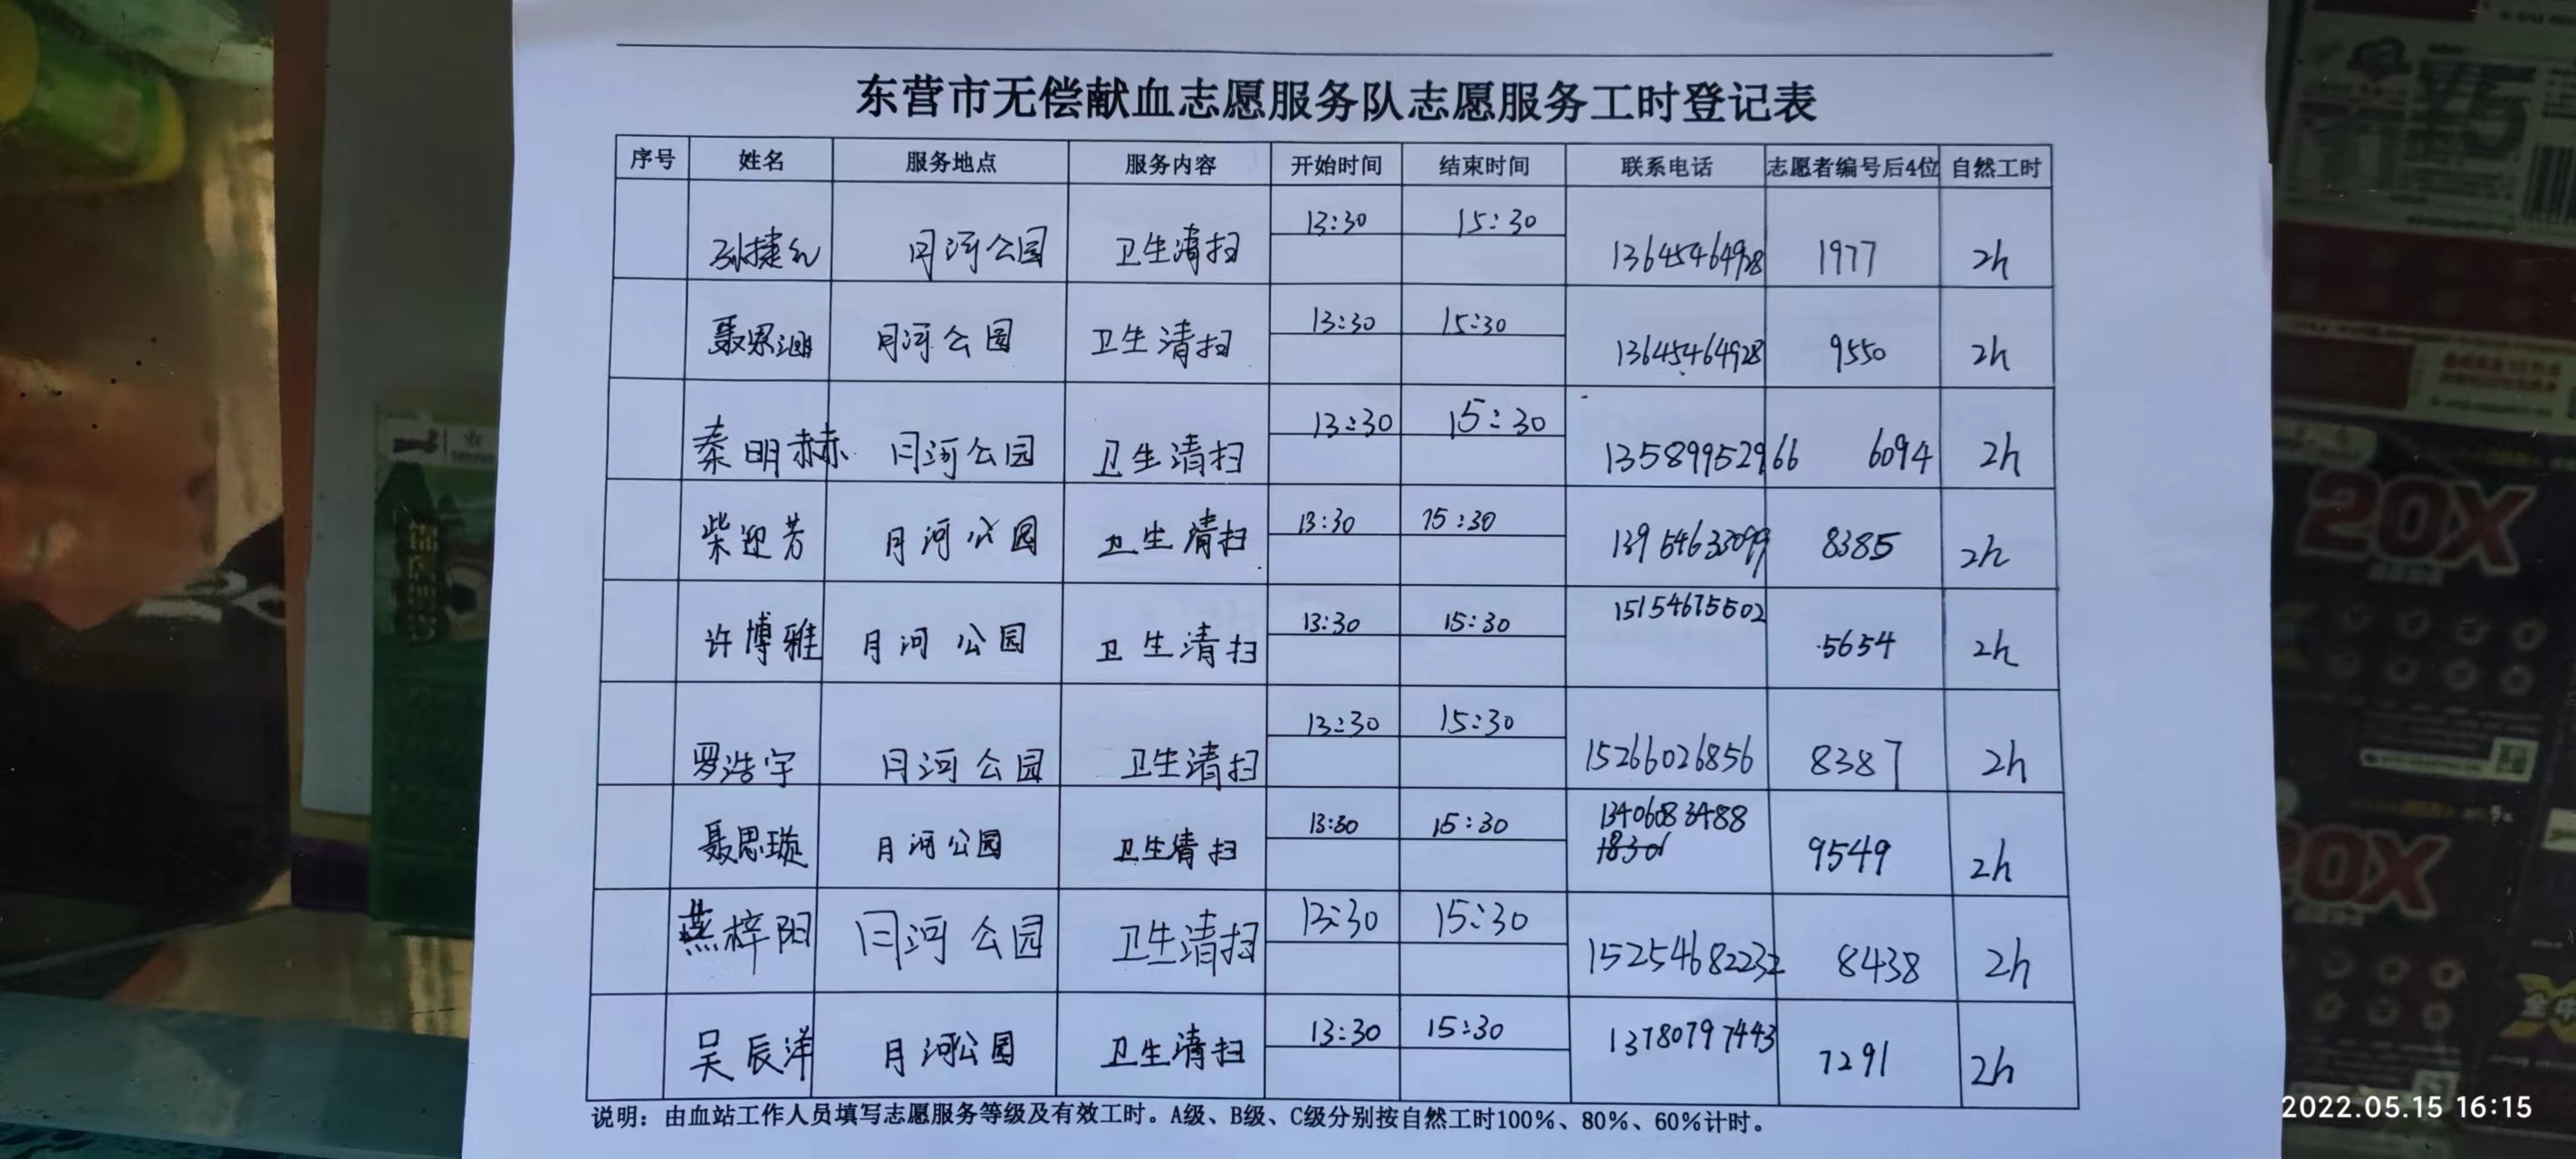 东营市无偿献血志愿服务队志愿服务工时登记表
序号 姓名 服务地点 服务内容 开始时间 结束时间 联系电话 志愿者编号后4位 自然工时
孙捷 月河公园 卫生清扫 13:30 15:30 13645464928 1977 2h
聂思涵 月河公园 卫生清扫 13:30 15:30 13645464928 9550 2h
秦明赫 月河公园 卫生清扫 13:30 15:30 13589952966 6094 2h
柴迎芳 月河公园 卫生清扫 13:30 15:30 13954633099 8385 2h
许博雅 月河公园 卫生清扫 13:30 15:30 15154675502 5654 2h
罗浩宇 月河公园 卫生清扫 13:30 15:30 15266026856 8387 2h
聂思璇 月河公园 卫生清扫 13:30 15:30 13406083488 9549 2h
燕梓阳 月河公园 卫生清扫 13:30 15:30 15254682232 8438 2h
吴辰洋 月河公园 卫生清扫 13:30 15:30 13780797443 7291 2h
说明：由血站工作人员填写志愿服务等级及有效工时。A级、B级、C级分别按自然工时100%、80%、60%计时。
20X
20X
2022.05.15 16:15